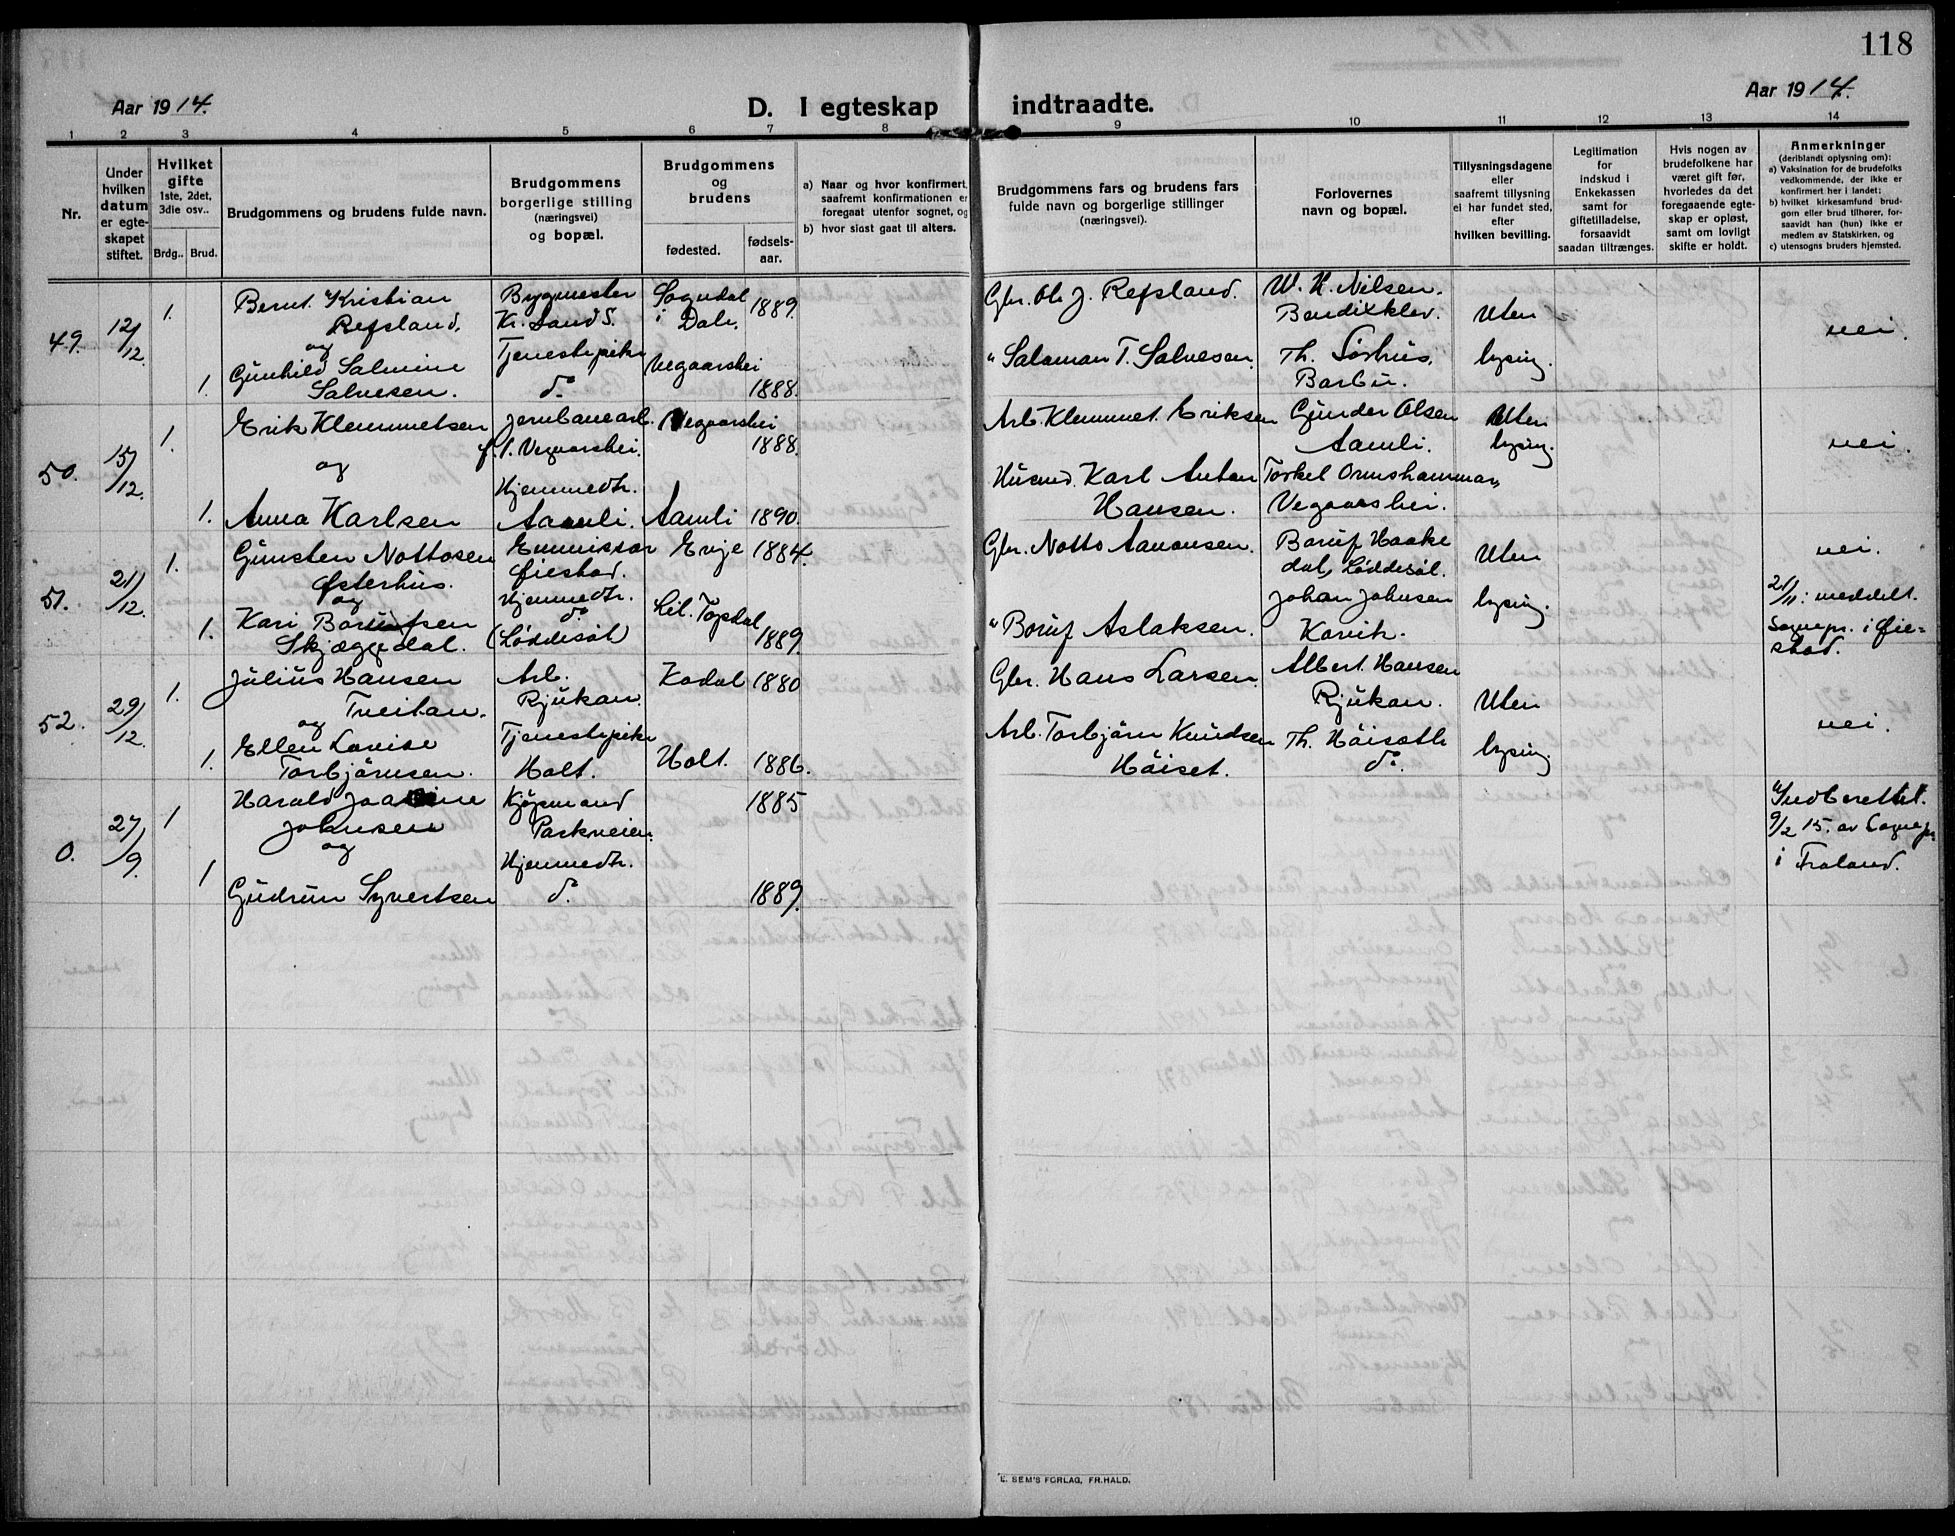 118
Aar 1914.
D. I egteskap indtraadte.
Aar 1914.
1 2 3 4 5 6 7 8 9 10 11 12 13 14
Nr.
Under hvilken datum er egteskapet stiftet.
Hvilket gifte 1ste, 2det, 3die osv..
Brdg.. Brud.
Brudgommens og brudens fulde navn.
Brudgommens borgerlige stilling (næringsvei) og bopæl.
Brudgommens og brudens
fødested.
fødsels-aar.
a) Naar og hvor konfirmert, saafremt konfirmationen er foregaat utenfor sognet, og
b) hvor sidst gaat til alters.
Brudgommens fars og brudens fars fulde navn og borgerlige stillinger (næringsvei).
Forlovernes navn og bopæl.
Tillysningsdagene eller saafremt tillysning ei har fundet sted, efter hvilken bevilling.
Legitimation for indskud i Enkekassen samt for giftetilladelse, forsaavidt saadan tiltrænges.
Hvis nogen av brudefolkene har været gift før, hvorledes da det foregaaende egteskap er opløst, samt om lovligt skifte er holdt.
Anmerkninger (deriblandt oplysning om):
a) Vaksination for de brudefolks vedkommende, der ikke er konfirmert her i landet;
b) hvilket kirkesamfund brudgom eller brud tilhører, forsaavidt han (hun) ikke er medlem av Statskirken, og
c) utensogns bruders hjemsted.
49. 12/12. 1. Bernt Kristian Refsland. Bygmester Kr.Sand S. Sogndal i Dale. 1889. Gbr. Ole J. Refsland. W. H. Nilsen. Bendixklev. Uten lysing. nei.
og
1. Gunhild Salmine Salvesen. Tjenestepike do Vegaarshei 1888. " Salaman T. Salvesen. Th. Sörhus, Barbu.
50. 15/12. 1. Erik Klemmetsen Jernbanearb. f. i. Vegaarshei. Vegaarshei 1888. Arb. Klemmet Eriksen Gunder Olsen Aamli. Uten lysing. nei.
og
1. Anna Karlsen Hjemmedtr. Aamli. Aamli 1890. Husmd. Karl Anton Hansen. Torkel Ormshammar, Vegaarshei.
51. 21/12. 1. Gunsten Nottosen Østerhus. Emmissær Øiestad. Evje 1884. Gbr. Notto Aanonsen. Boruf Haakedal, Löddesöl. Uten lysing. nei.
og
1. Kari Borufsen Skjæggedal. Hjemmedtr. do (Löddesöl Lil. Topdal 1889. " Boruf Aslaksen. Johan Johnsen Korvik. 21/11: meddelt. Sognepr. i Øiestad.
52. 29/12. 1. Julius Hansen Tveitan. Arb. Rjukan. Kodal 1880 Gbr. Hans Larsen. Albert Hansen Rjukan. Uten lysing. nei.
og
1. Ellen Lovise Torbjörnsen. Tjenestepike Holt. Holt. 1886. Arb. Torbjörn Knudsen Höiset. Th. Höisæth do.
0. 27/9. 1 Harald Johnsen Kjøpmand Parkveien. 1885 Indberettet. 9/2 15. av Sognepr. i Froland.
og
1 Gudrun Syvertsen Hjemmedtr. do. 1889.
E. SEM'S FORLAG, FR.HALD.